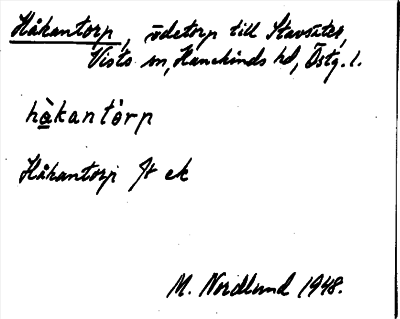 Håkantorp, ödetorp till Stavsäter,
Vists sn, Hanekinds hd, Östg. l.
hå̀kantòrp
Håkantorp ek
M. Nordlund 1948.